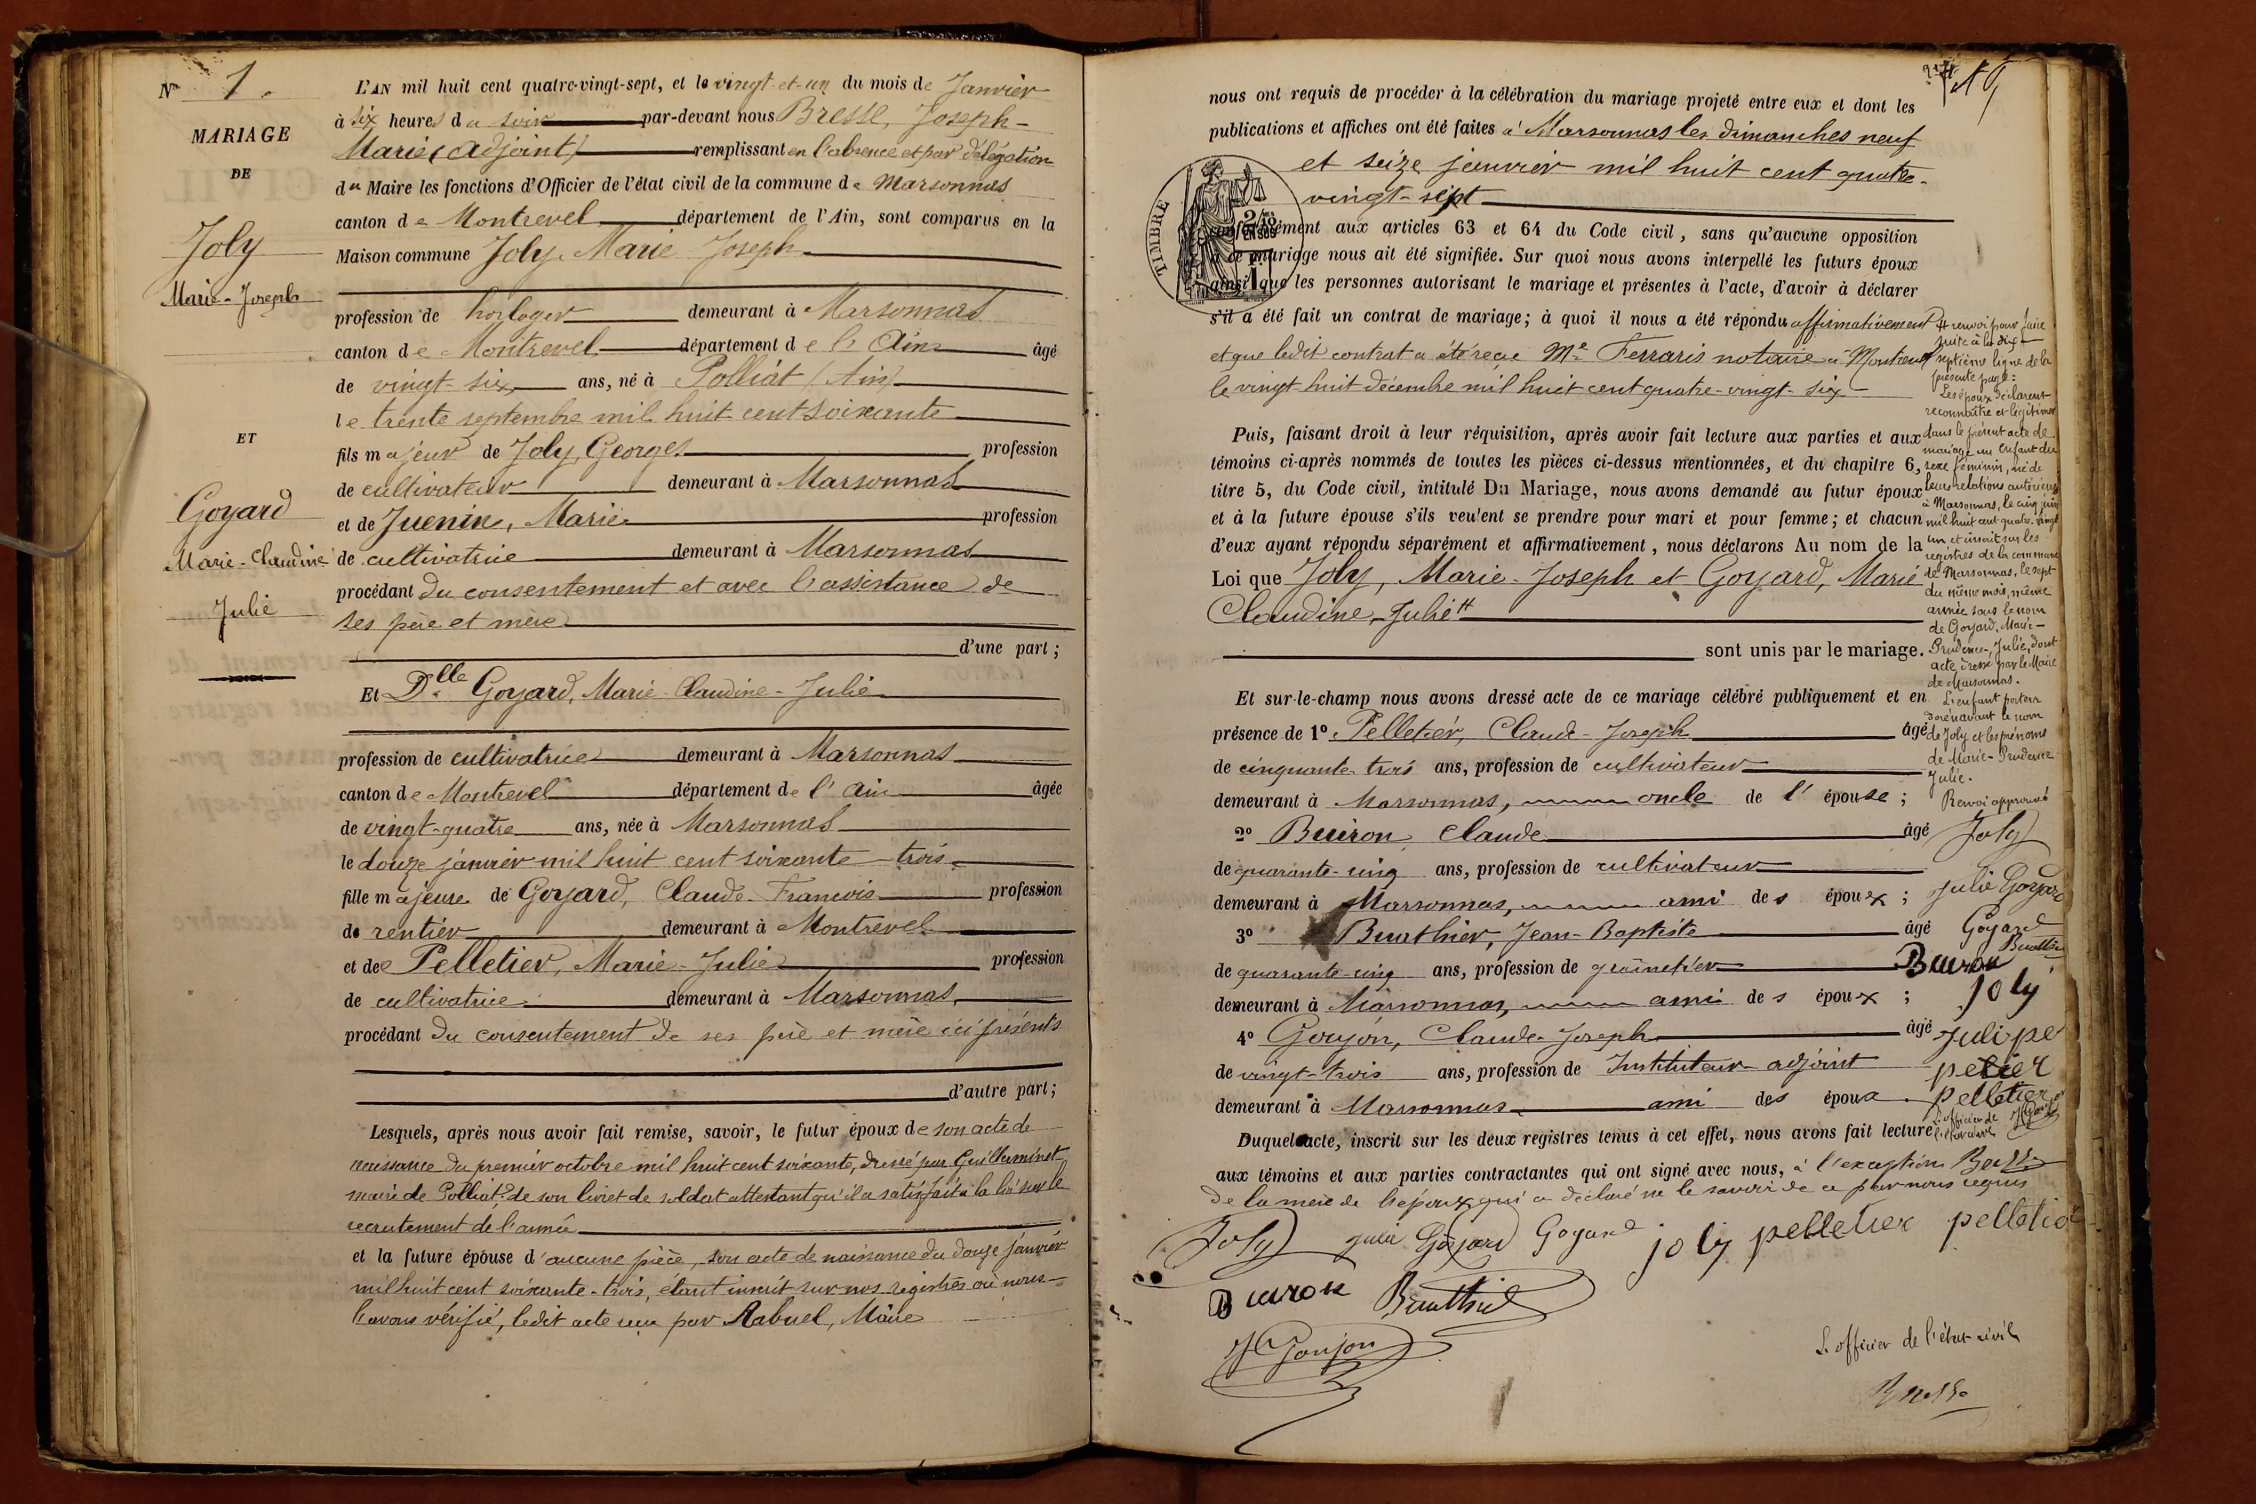 N° 1.
MARIAGE
DE
Joly
Marie-Joseph
ET
Goyard
Marie-Claudine
Julie
L'AN mil huit cent quatre-vingt-sept, et le vingt-et-un du mois de Janvier
à six heures du soir par-devant nous Bresse, Joseph-
Marie (adjoint) remplissant en l'absence et par délégation
du Maire les fonctions d'Officier de l'état civil de la commune de Marsonnas
canton de Montrevel département de l'Ain, sont comparus en la
Maison commune Joly, Marie Joseph
profession de horloger demeurant à Marsonnas
canton de Montrevel département de l'Ain âgé
de vingt-six ans, né à Polliat (Ain)
le trente septembre mil huit cent soixante
fils majeur de Joly, Georges profession
de cultivateur demeurant à Marsonnas
et de Juenin, Marie profession
de cultivatrice demeurant à Marsonnas
procédant du consentement et avec l'assistance de
ses père et mère
d'une part ;
Et Dlle Goyard, Marie-Claudine-Julie
profession de cultivatrice demeurant à Marsonnas
canton de Montrevel département de l'Ain âgée
de vingt-quatre ans, née à Marsonnas
le douze janvier mil huit cent soixante-trois
fille majeure de Goyard, Claude-François profession
de rentier demeurant à Montrevel
et de Pelletier, Marie-Julie profession
de cultivatrice demeurant à Marsonnas
procédant du consentement de ses père et mère ici présents
d'autre part ;
Lesquels, après nous avoir fait remise, savoir, le futur époux de son acte de
naissance du premier octobre mil huit cent soixante, dressé par Guillerminet
maire de Polliat, de son livret de soldat attestant qu'il a satisfait à la loi sur le
recrutement de l'armée
et la future épouse d'aucune pièce, son acte de naissance du douze janvier
mil huit cent soixante-trois, étant inscrit sur nos registres où nous
l'avons vérifié, ledit acte reçu par Rabuel, Maire
nous ont requis de procéder à la célébration du mariage projeté entre eux et dont les
publications et affiches ont été faites à Marsonnas les dimanches neuf
et seize janvier mil huit cent quatre-
vingt-sept
TIMBRE
conformément aux articles 63 et 64 du Code civil, sans qu'aucune opposition
à ce mariage nous ait été signifiée. Sur quoi nous avons interpellé les futurs époux
ainsi que les personnes autorisant le mariage et présentes à l'acte, d'avoir à déclarer
s'il a été fait un contrat de mariage ; à quoi il nous a été répondu affirmativement
et que ledit contrat a été reçu Me Ferraris notaire à Montrevel
le vingt huit décembre mil huit cent quatre-vingt-six
Puis, faisant droit à leur réquisition, après avoir fait lecture aux parties et aux
témoins ci-après nommés de toutes les pièces ci-dessus mentionnées, et du chapitre 6,
titre 5, du Code civil, intitulé Du Mariage, nous avons demandé au futur époux
et à la future épouse s'ils veulent se prendre pour mari et pour femme ; et chacun
d'eux ayant répondu séparément et affirmativement, nous déclarons Au nom de la
Loi que Joly, Marie-Joseph et Goyard, Marie
Claudine, Julie #
sont unis par le mariage.
Et sur-le-champ nous avons dressé acte de ce mariage célébré publiquement et en
présence de 1° Pelletier, Claude-Joseph âgé
de cinquante-trois ans, profession de cultivateur
demeurant à Marsonnas, oncle de l'épouse ;
2° Buiron, Claude âgé
de quarante-cinq ans, profession de cultivateur
demeurant à Marsonnas, ami des époux ;
3° Buathier, Jean-Baptiste âgé
de quarante-cinq ans, profession de grainetier
demeurant à Marsonnas, ami des époux ;
4° Goujon, Claude-Joseph âgé
de vingt-trois ans, profession de Instituteur-adjoint
demeurant à Marsonnas ami des époux.
Duquel acte, inscrit sur les deux registres tenus à cet effet, nous avons fait lecture
aux témoins et aux parties contractantes qui ont signé avec nous, à l'exception
de la mère de l'époux qui a déclaré ne le savoir de ce par nous requis
Joly Julie Goyard Goyard joly pelletier pelletier
Buiron Buathier
Goujon
L'officier de l'état-civil
Bresse
# renvoi pour faire
suite à la dix-
septième ligne de la
présente page :
Les époux déclarent
reconnaître et légitimer
dans le présent acte de
mariage un enfant du
sexe féminin, né de
leurs relations antérieures
à Marsonnas, le cinq juin
mil huit cent quatre-vingt
un et inscrit sur les
registres de la commune
de Marsonnas, le sept
du même mois, même
année sous le nom
de Goyard, Marie-
Prudence, Julie, dont
acte dressé par le Maire
de Marsonnas.
L'enfant portera
dorénavant le nom
de Joly et les prénoms
de Marie-Prudence
Julie.
Renvoi approuvé
Joly
Julie Goyard
Goyard
Buathier
Buiron
joly
Juli pe
letier
pelletier
L'officier de
l'état civil
Bresse